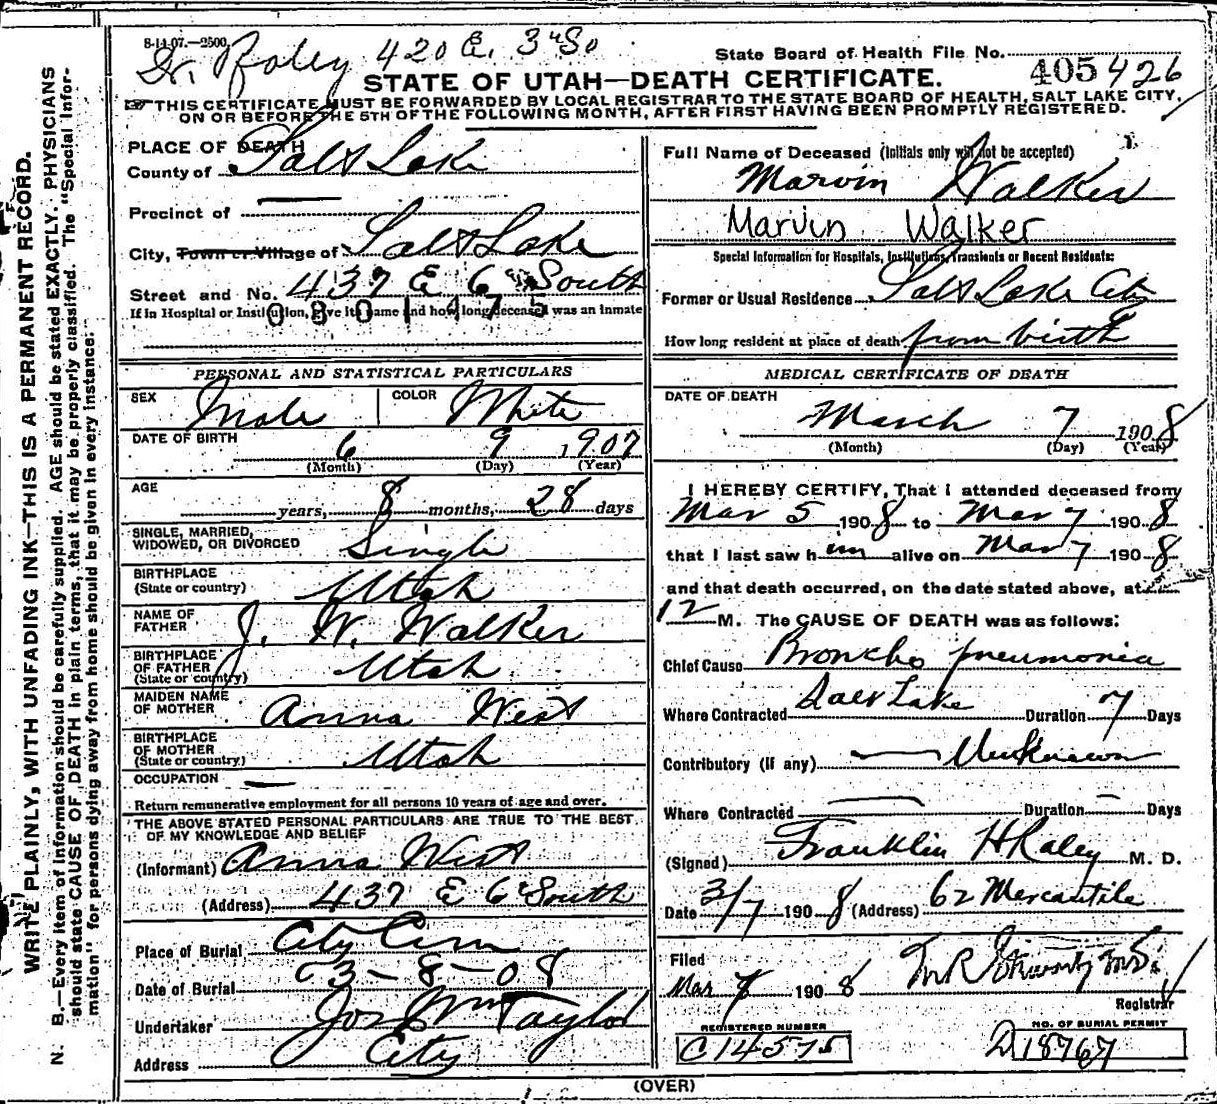 8-14-07.—2500.
Dr. Raley 420 E. 3rd So
State Board of Health File No. 405 426
STATE OF UTAH—DEATH CERTIFICATE.
THIS CERTIFICATE MUST BE FORWARDED BY LOCAL REGISTRAR TO THE STATE BOARD OF HEALTH, SALT LAKE CITY,
ON OR BEFORE THE 5TH OF THE FOLLOWING MONTH, AFTER FIRST HAVING BEEN PROMPTLY REGISTERED.
WRITE PLAINLY, WITH UNFADING INK—THIS IS A PERMANENT RECORD.
N. B.—Every item of information should be carefully supplied. AGE should be stated EXACTLY. PHYSICIANS
should state CAUSE OF DEATH in plain terms, that it may be properly classified. The "Special Infor-
mation" for persons dying away from home should be given in every instance.
PLACE OF DEATH
County of Salt Lake
Precinct of
City, Town or Village of Salt Lake
Street and No. 437 E 6th South
0801475
If in Hospital or Institution, give its name and how long deceased was an inmate
PERSONAL AND STATISTICAL PARTICULARS
SEX Male COLOR White
DATE OF BIRTH 6 9 1907
(Month) (Day) (Year)
AGE
years, 8 months, 28 days
SINGLE, MARRIED,
WIDOWED, OR DIVORCED Single
BIRTHPLACE
(State or country) Utah
NAME OF
FATHER J. W. Walker
BIRTHPLACE
OF FATHER
(State or country) Utah
MAIDEN NAME
OF MOTHER Anna West
BIRTHPLACE
OF MOTHER
(State or country) Utah
OCCUPATION —
Return remunerative employment for all persons 10 years of age and over.
THE ABOVE STATED PERSONAL PARTICULARS ARE TRUE TO THE BEST
OF MY KNOWLEDGE AND BELIEF
(Informant) Anna West
(Address) 437 E 6th South
Place of Burial City Cem
Date of Burial 3-8-08
Undertaker Jos Wm Taylor
Address City
Full Name of Deceased (Initials only will not be accepted)
Marvin Walker
Marvin Walker
Special Information for Hospitals, Institutions, Transients or Recent Residents:
Former or Usual Residence Salt Lake City
How long resident at place of death from birth
MEDICAL CERTIFICATE OF DEATH
DATE OF DEATH
March 7 1908
(Month) (Day) (Year)
I HEREBY CERTIFY, That I attended deceased from
Mar 5 1908 to Mar 7 1908
that I last saw him alive on Mar 7 1908
and that death occurred, on the date stated above, at
12 M. The CAUSE OF DEATH was as follows:
Chief Cause Broncho pneumonia
Where Contracted Salt Lake Duration 7 Days
Contributory (if any) — Unknown
Where Contracted — Duration — Days
(Signed) Franklin H Raley M. D.
Date 3/7 1908 (Address) 62 Mercantile
Filed
Mar 7 1908
Registrar
REGISTERED NUMBER
C 14575
NO. OF BURIAL PERMIT
D 18767
(OVER)